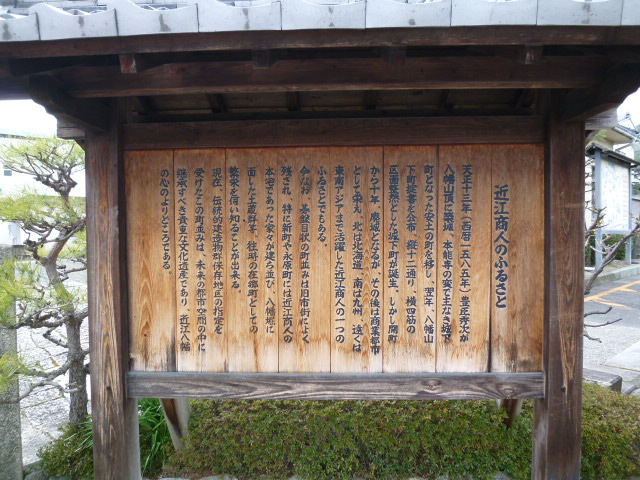 近江商人のふるさと
天正十三年(西暦一五八五年)豊臣秀次が
八幡山頂に築城、本能寺の変で主なき城下
町となった安土の町を移し、翌年、八幡山
下町掟書を公布、縦十二通り、横四筋の
区画整然とした城下町が誕生、しかし開町
から十年、廃城となるが、その後は商業都市
として栄え、北は北海道、南は九州、遠くは
東南アジアまで活躍した近江商人の一つの
ふるさとでもある。
今なお、碁盤目状の町並みは旧市街によく
残され、特に新町や永原町には近江商人の
本宅であった家々が建ち並び、八幡堀に
面した土蔵群は、往時の在郷町としての
繁栄を伺い知ることが出来る。
現在、伝統的建造物群保存地区の指定を
受けたこの町並みは、未来の都市空間の中に
継承すべき貴重な文化遺産であり、近江八幡
の心のよりどころである。